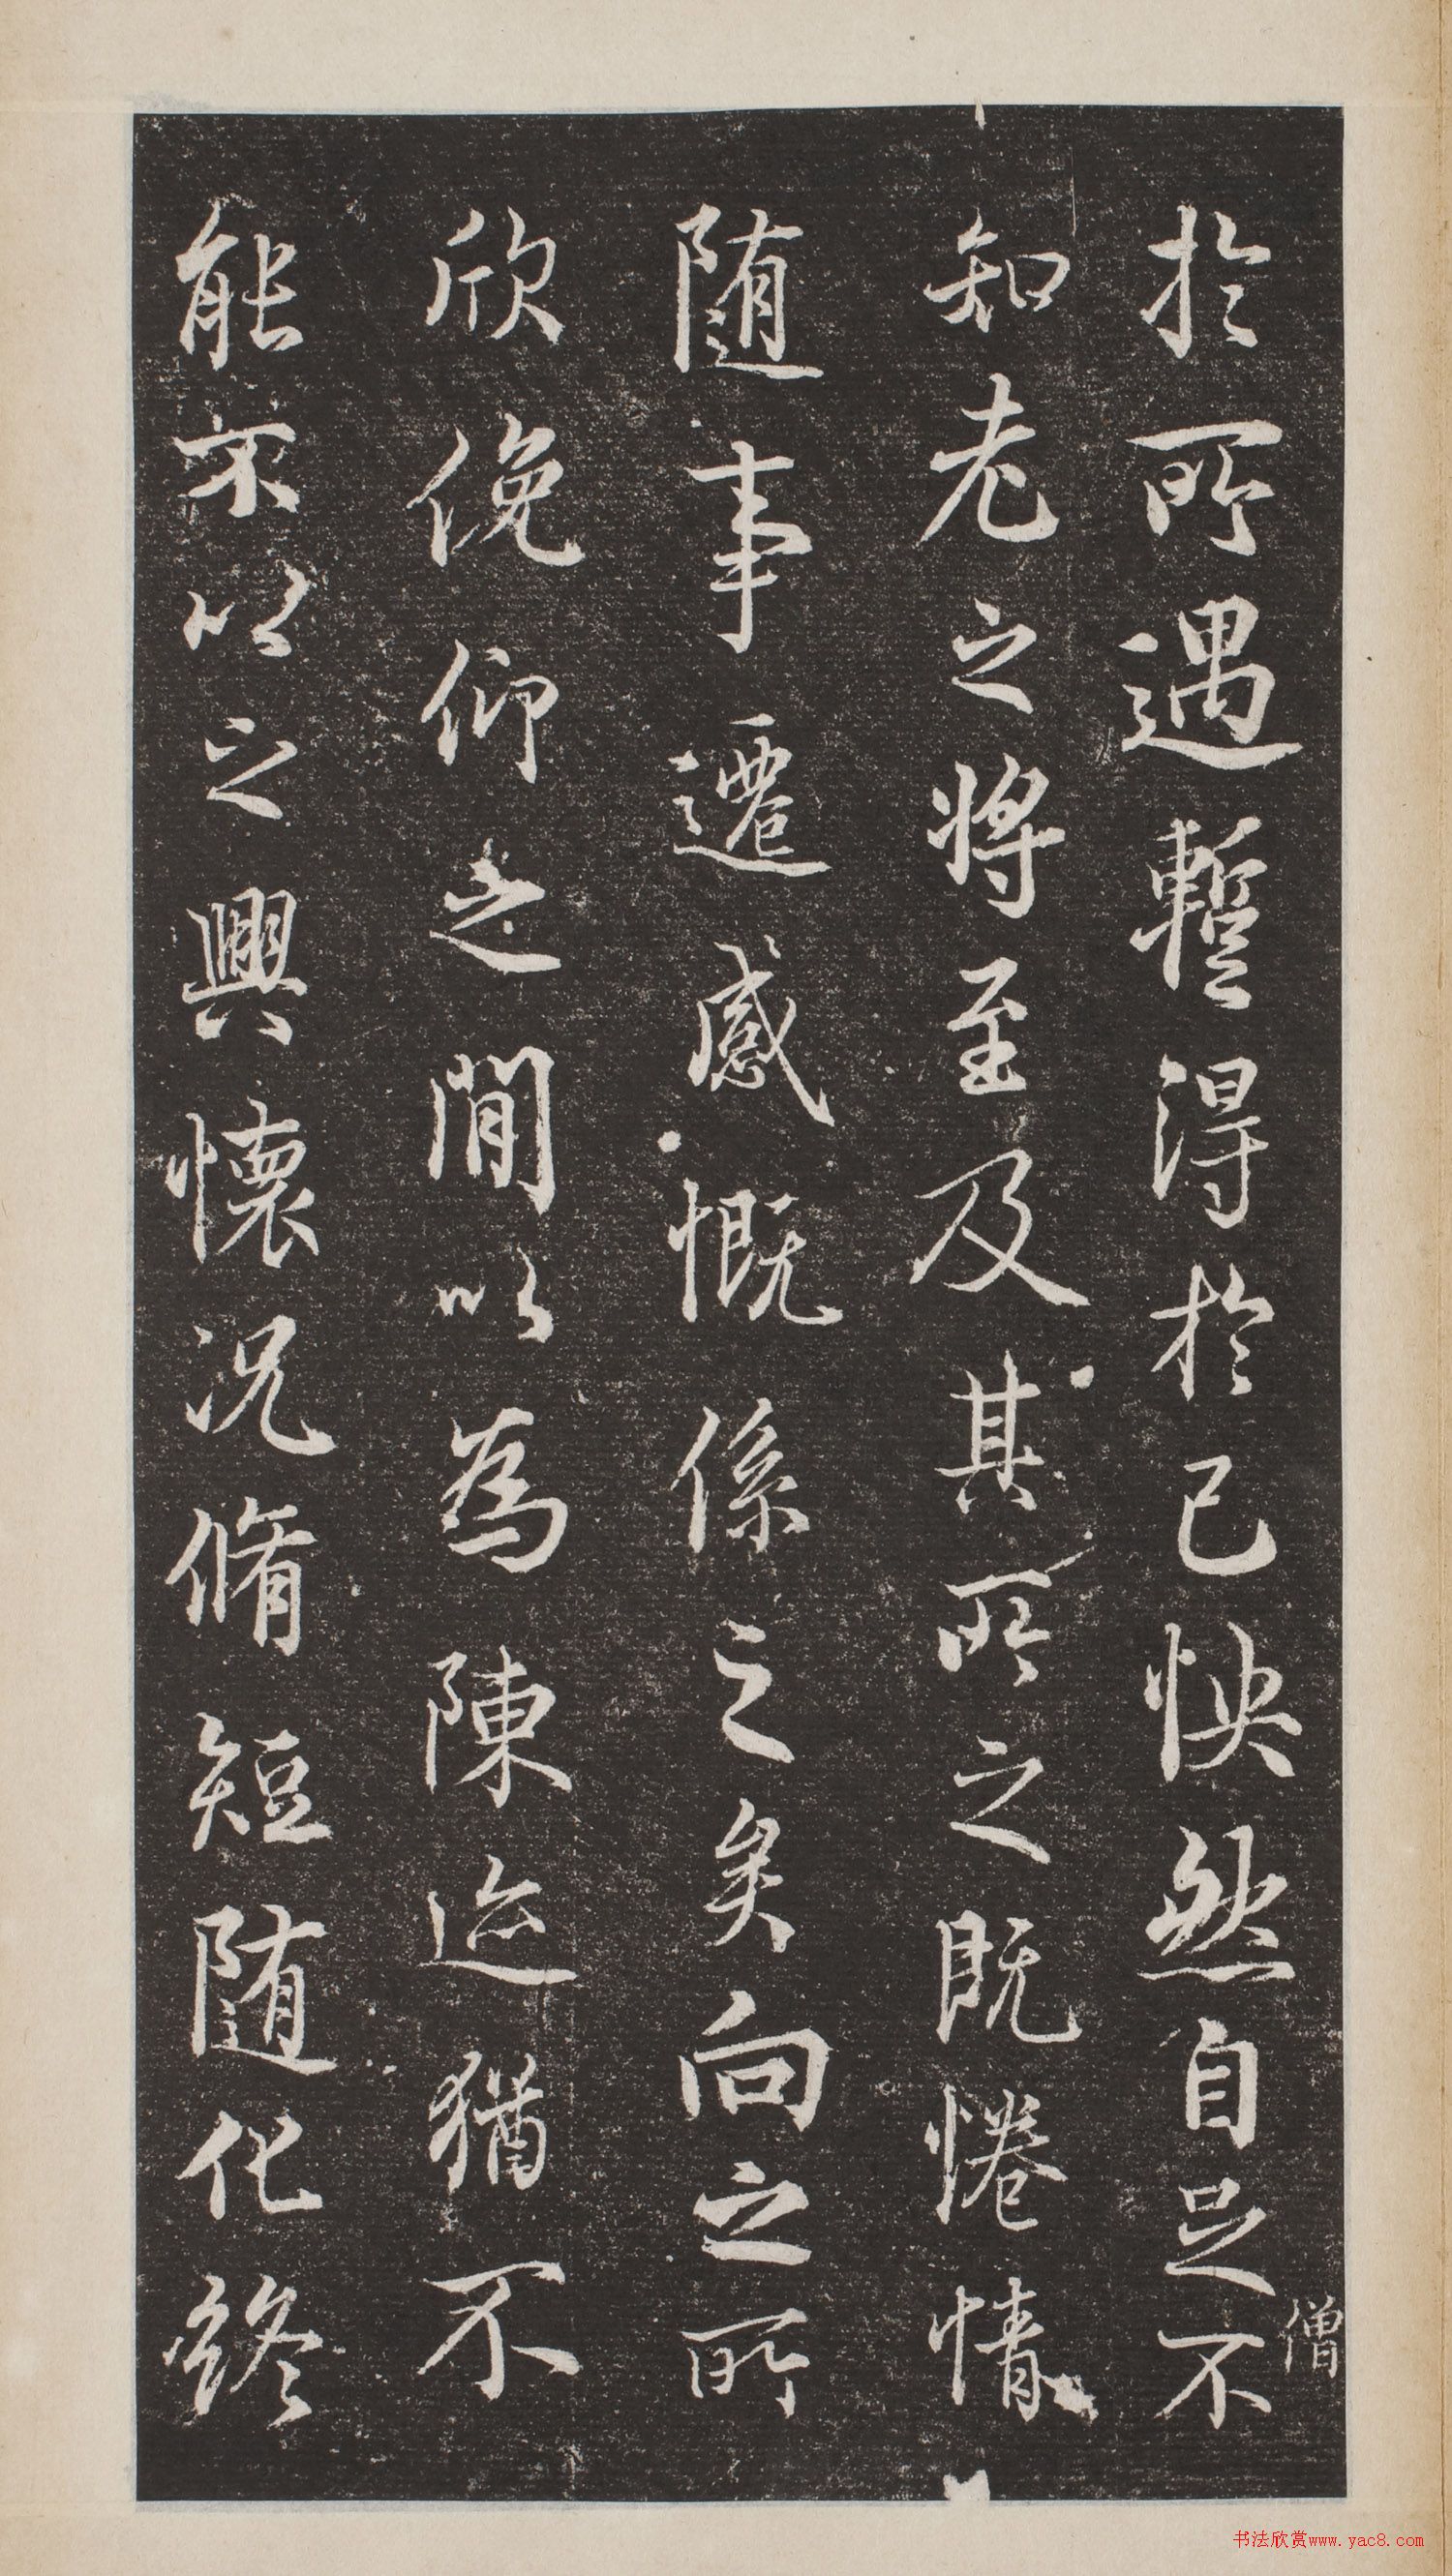 於所遇蹔得於己怏然自足不
僧
知老之將至及其所之既惓情
随事遷感慨係之矣向之所
欣俛仰之間以為陳迹猶不
能不以之興懷況脩短随化終
书法欣赏www.yac8.com